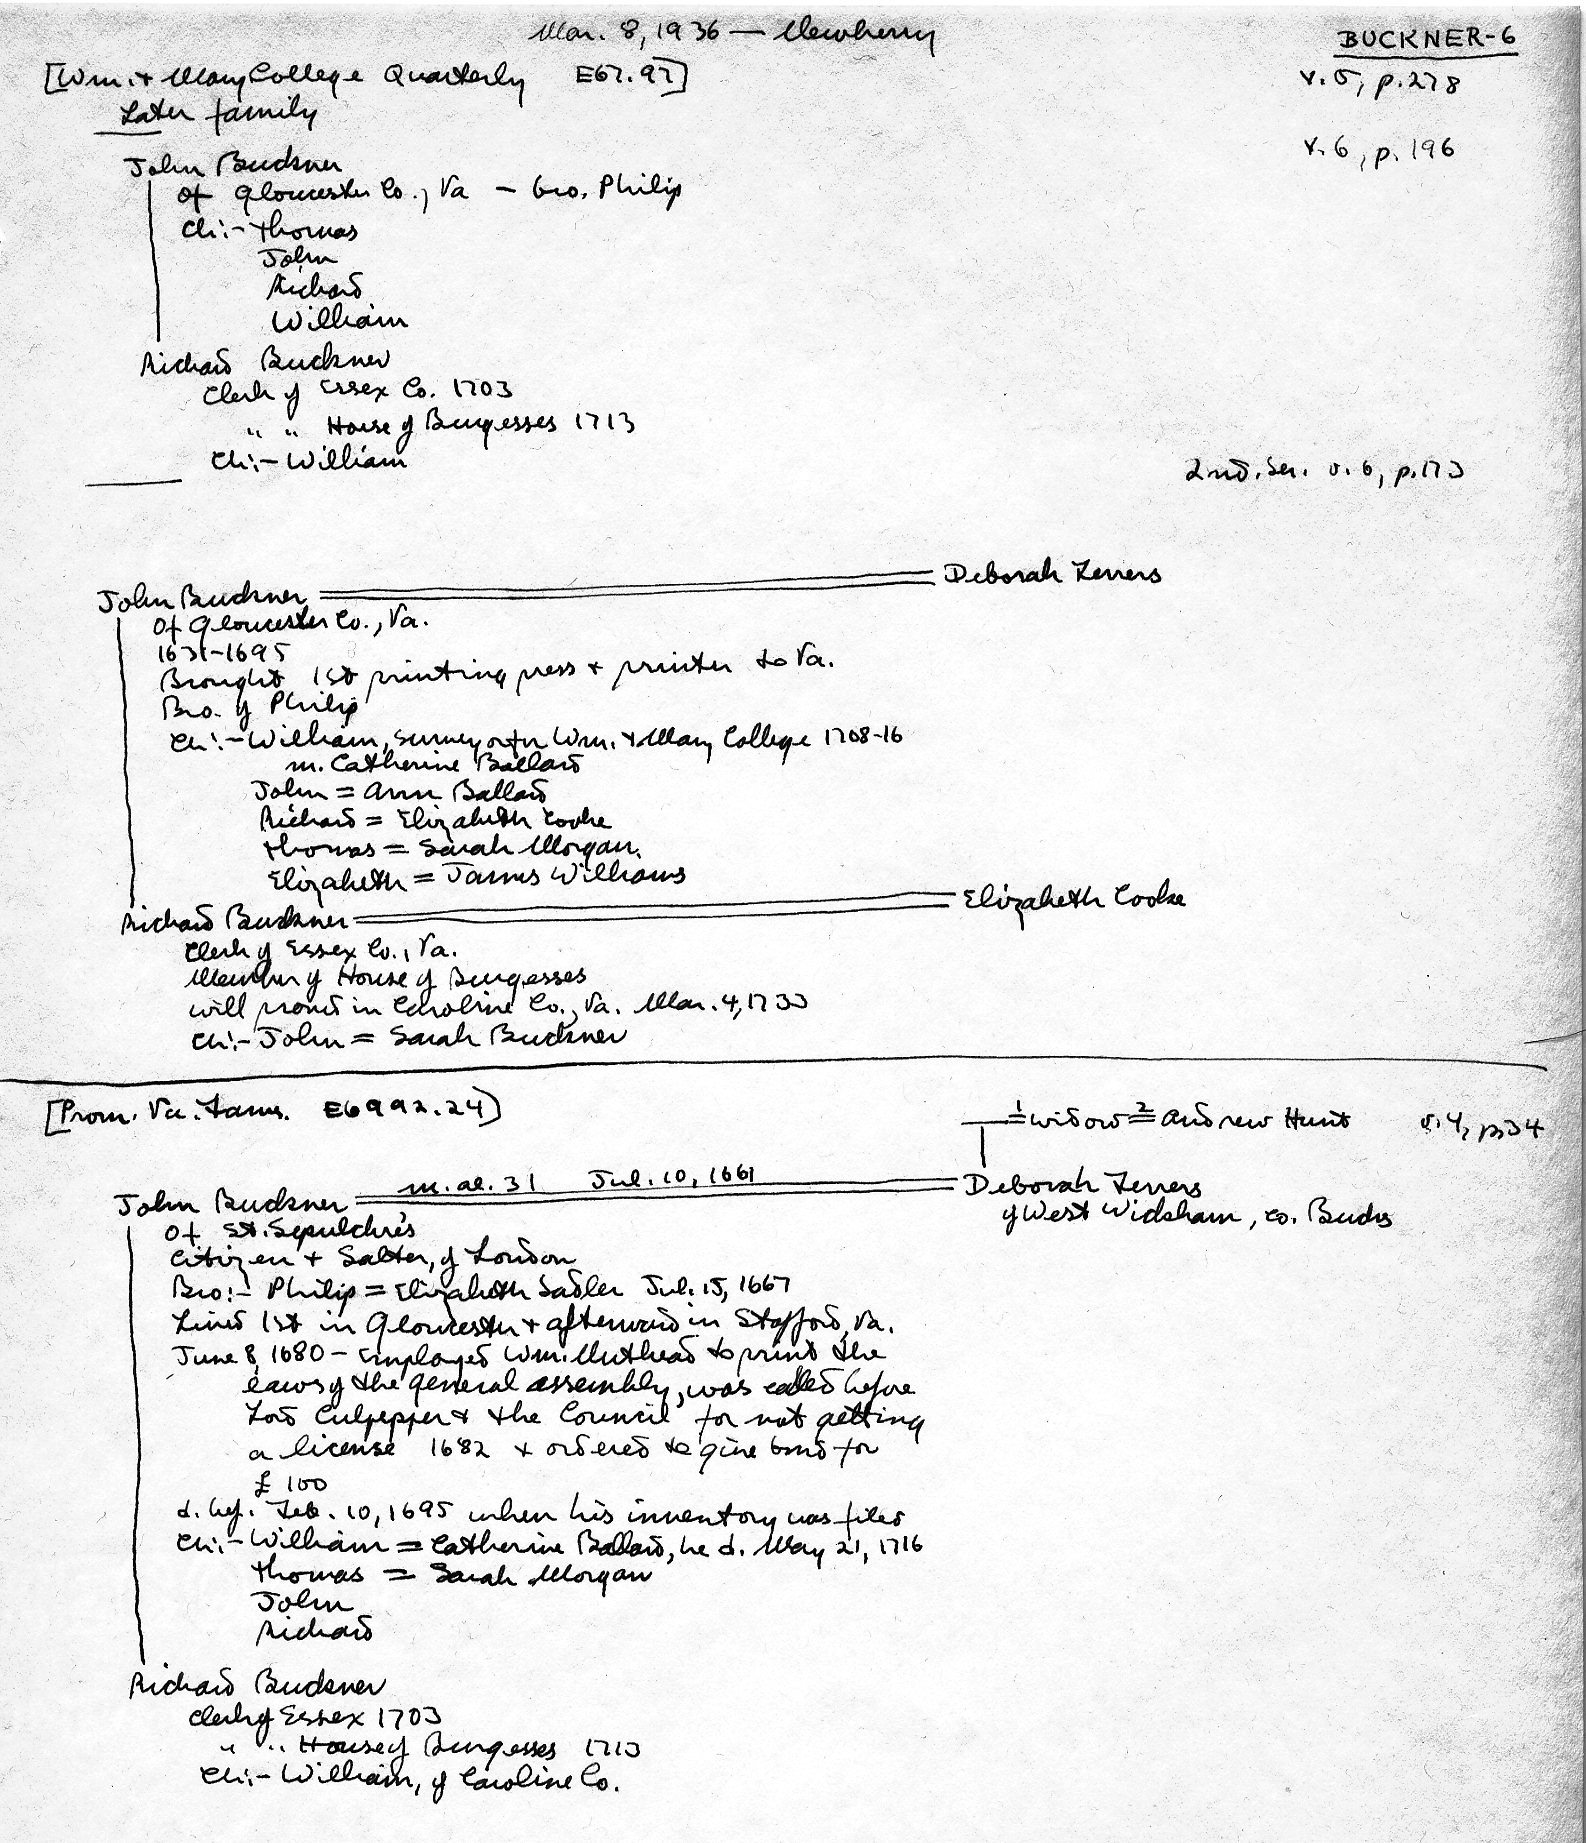 Mar. 8, 1936 — Newberry
BUCKNER-6
[Wm. + Mary College Quarterly E67.97]
v. 5, p. 278
Later family
v. 6, p. 196
John Buckner
of Gloucester Co., Va - bro. Philip
Ch:- Thomas
John
Richard
William
Richard Buckner
Clerk of Essex Co. 1703
" " House of Burgesses 1713
Ch:- William
2nd. Ser. v. 6, p. 173
John Buckner = Deborah Ferrers
of Gloucester Co., Va.
1631-1695
Brought 1st printing press + printer to Va.
Bro. of Philip
Ch:- William, surveyor for Wm. + Mary College 1708-16
m. Catherine Ballard
John = Ann Ballard
Richard = Elizabeth Cooke
Thomas = Sarah Morgan.
Elizabeth = James Williams
Richard Buckner = Elizabeth Cooke
Clerk of Essex Co., Va.
Member of House of Burgesses
will proved in Caroline Co., Va. Mar. 4, 1733
Ch:- John = Sarah Buckner
[Prom. Va. Fams. E6992.24]
— 1= widow 2= Andrew Hunt
v. 4, p. 34
John Buckner = m. ae. 31 Jul. 10, 1661 = Deborah Ferrers
of West Wickham, co. Bucks
of St. Sepulchre's
Citizen + Salter, of London
Bro:- Philip = Elizabeth Sadler Jul. 15, 1667
Lived 1st in Gloucester + afterward in Stafford, Va.
June 8, 1680 - Employed Wm. Nuthead to print the
laws of the general assembly, was called before
Lord Culpepper + the Council for not getting
a license 1682 + ordered to give bond for
£ 100
d. bef. Feb. 10, 1695 when his inventory was filed
Ch:- William = Catherine Ballard, he d. May 21, 1716
Thomas = Sarah Morgan
John
Richard
Richard Buckner
Clerk of Essex 1703
" " House of Burgesses 1713
Ch:- William, of Caroline Co.